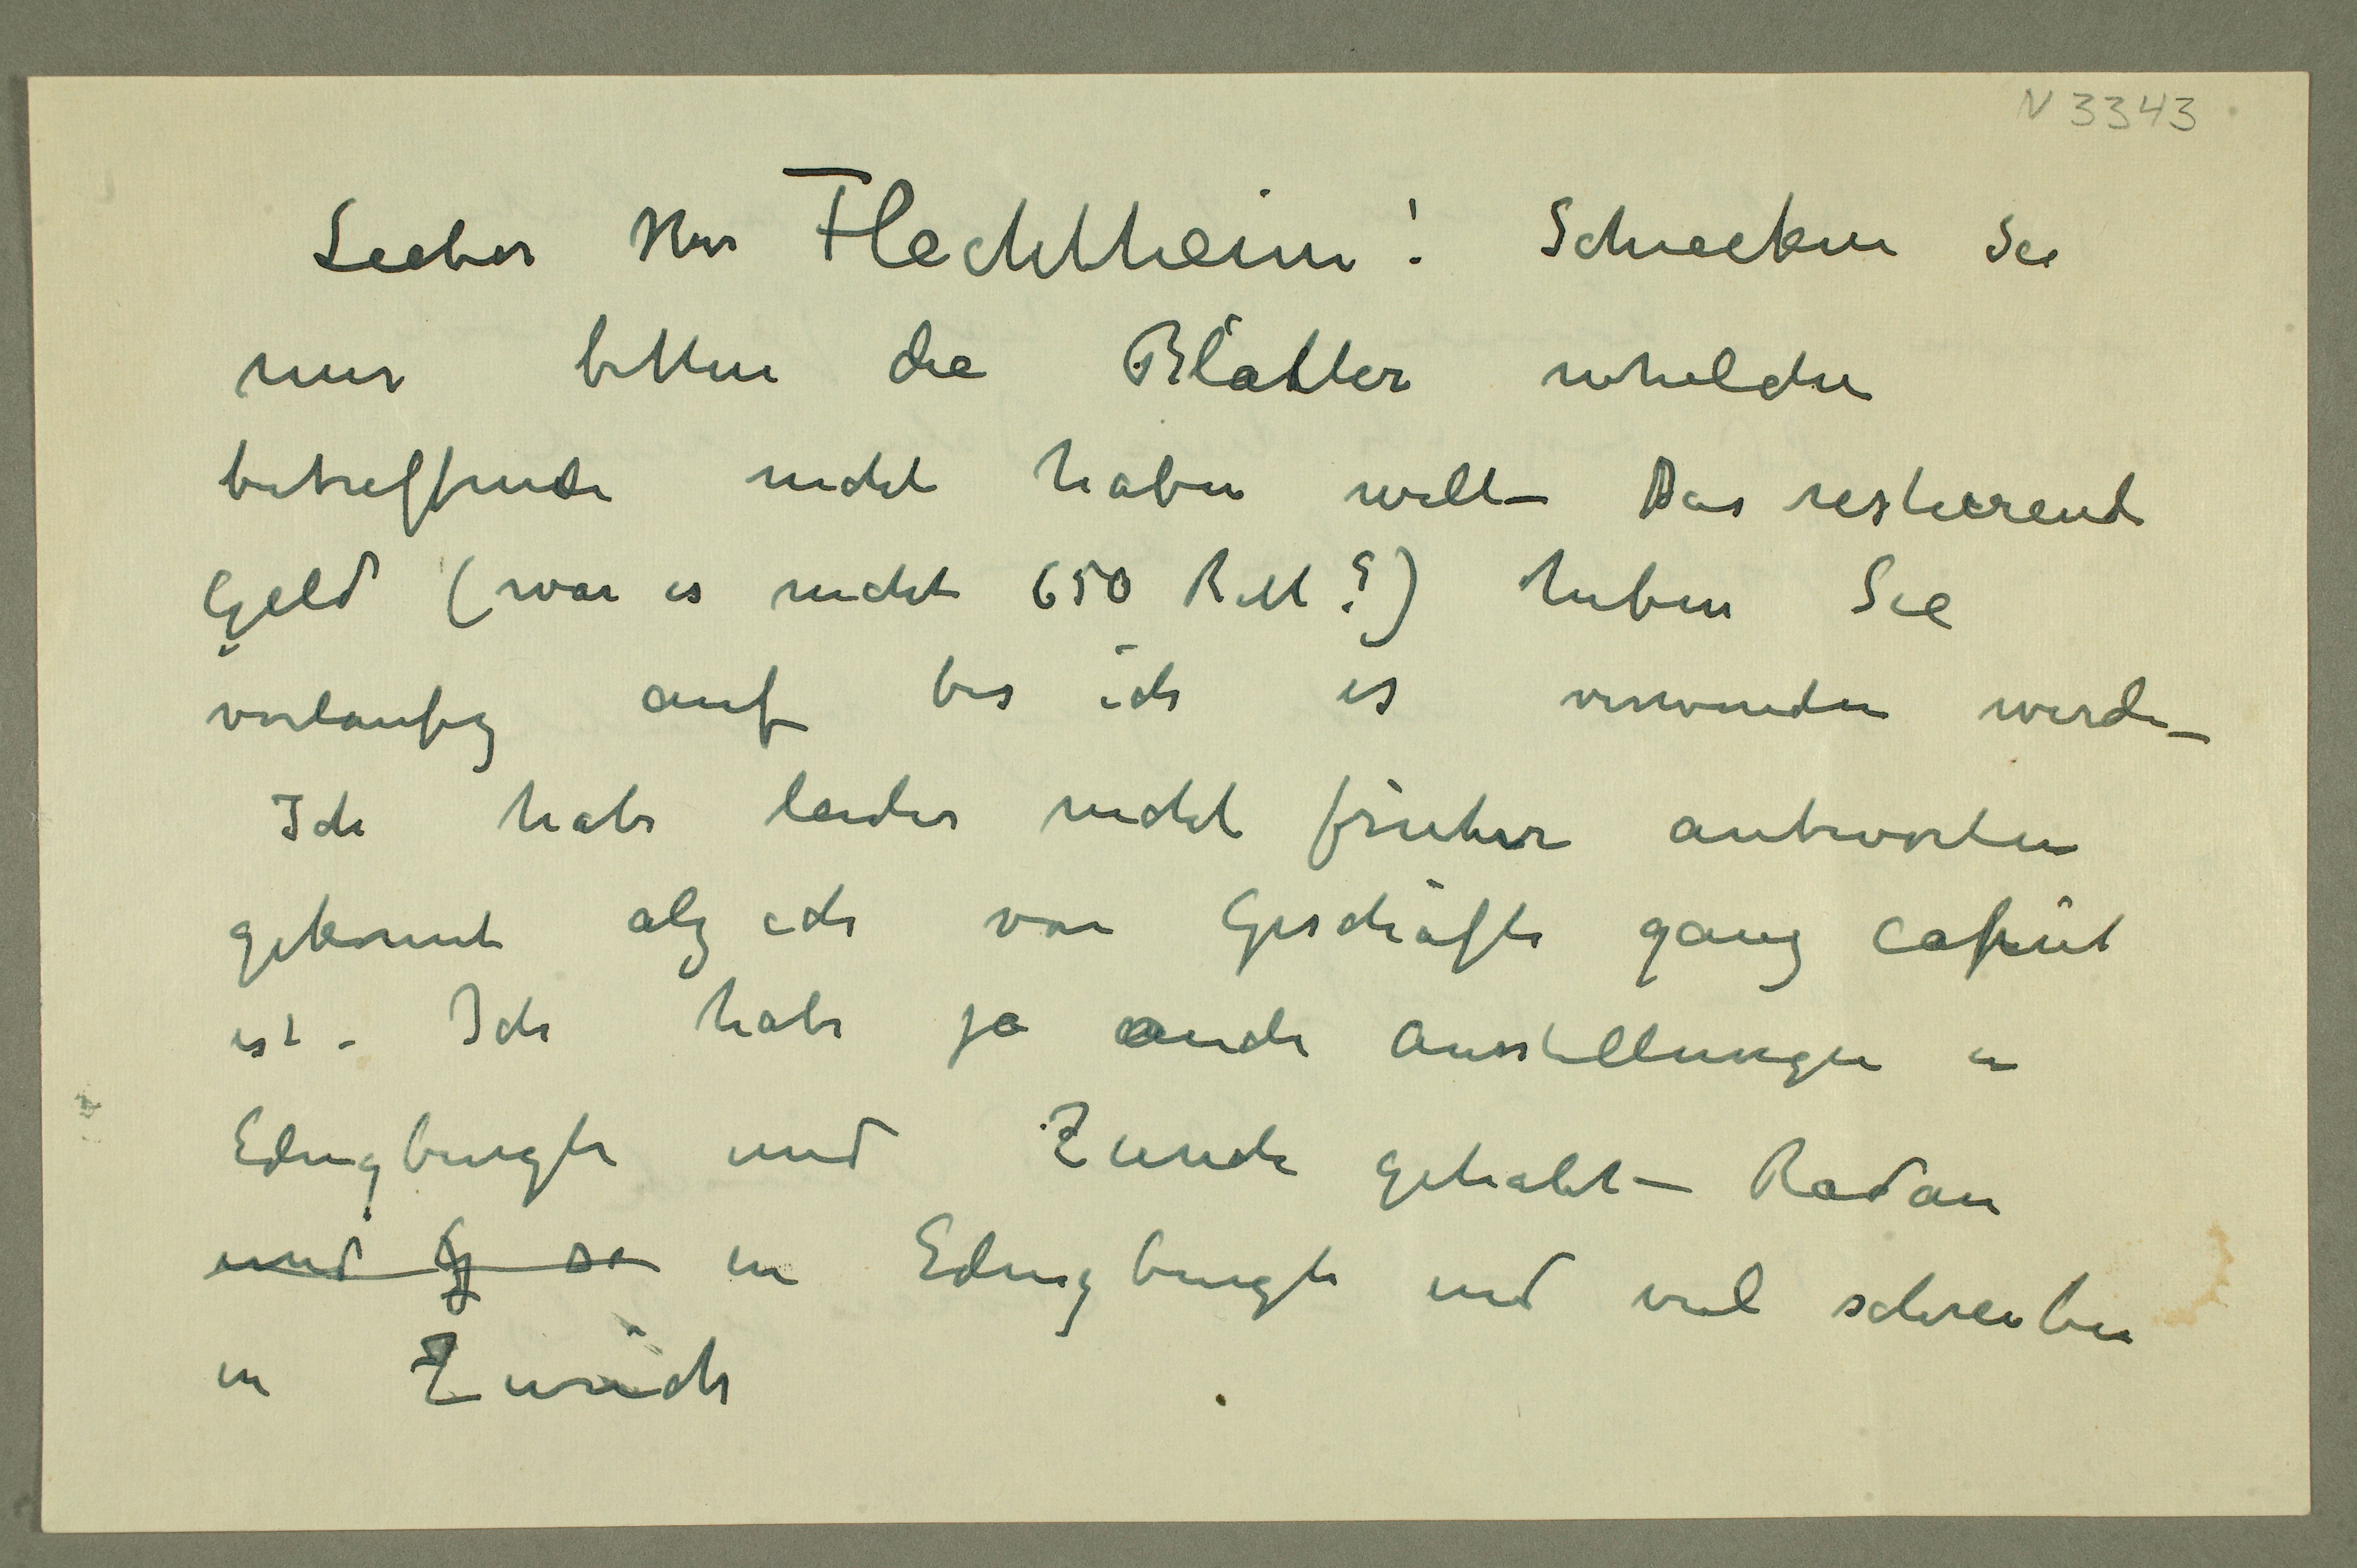 N 3343
Lieber Herr Flechtheim! Schiecken Sie
mir bitten die Blätter whelche
betreffende nicht haben will – Das restierende
Geld (war es nicht 650 RM?) heben Sie
vorläufig auf bis ich es verwenden werde –
Ich habe leider nicht früher antworten
gekonnt alz ich von Geschäfte ganz caput
ist – Ich habe ja auch Ausstellungen in
Edingburgh und Zürich gehabt – Radau
und G so in Edingburgh und viel schreiben
in Zürich